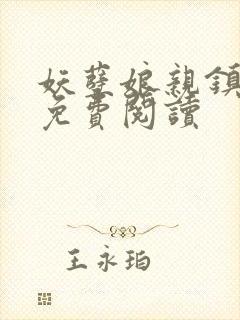 妖孽娘親鎮
免費閱讀
王永珀